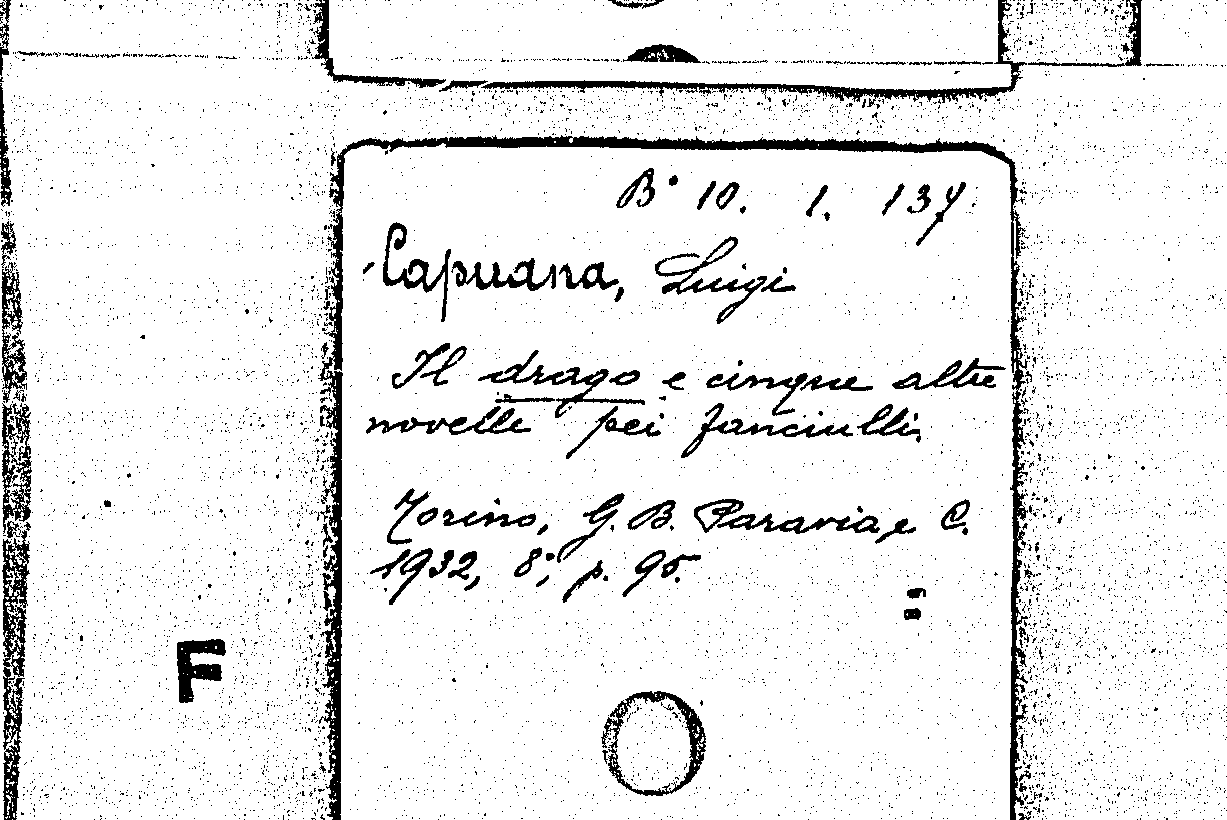 B° 10. 1. 137
Capuana, Luigi
Il drago e cinque altre
novelle pei fanciulli
Torino, G. B. Paravia e C.
1932, 8°, p. 95.
F